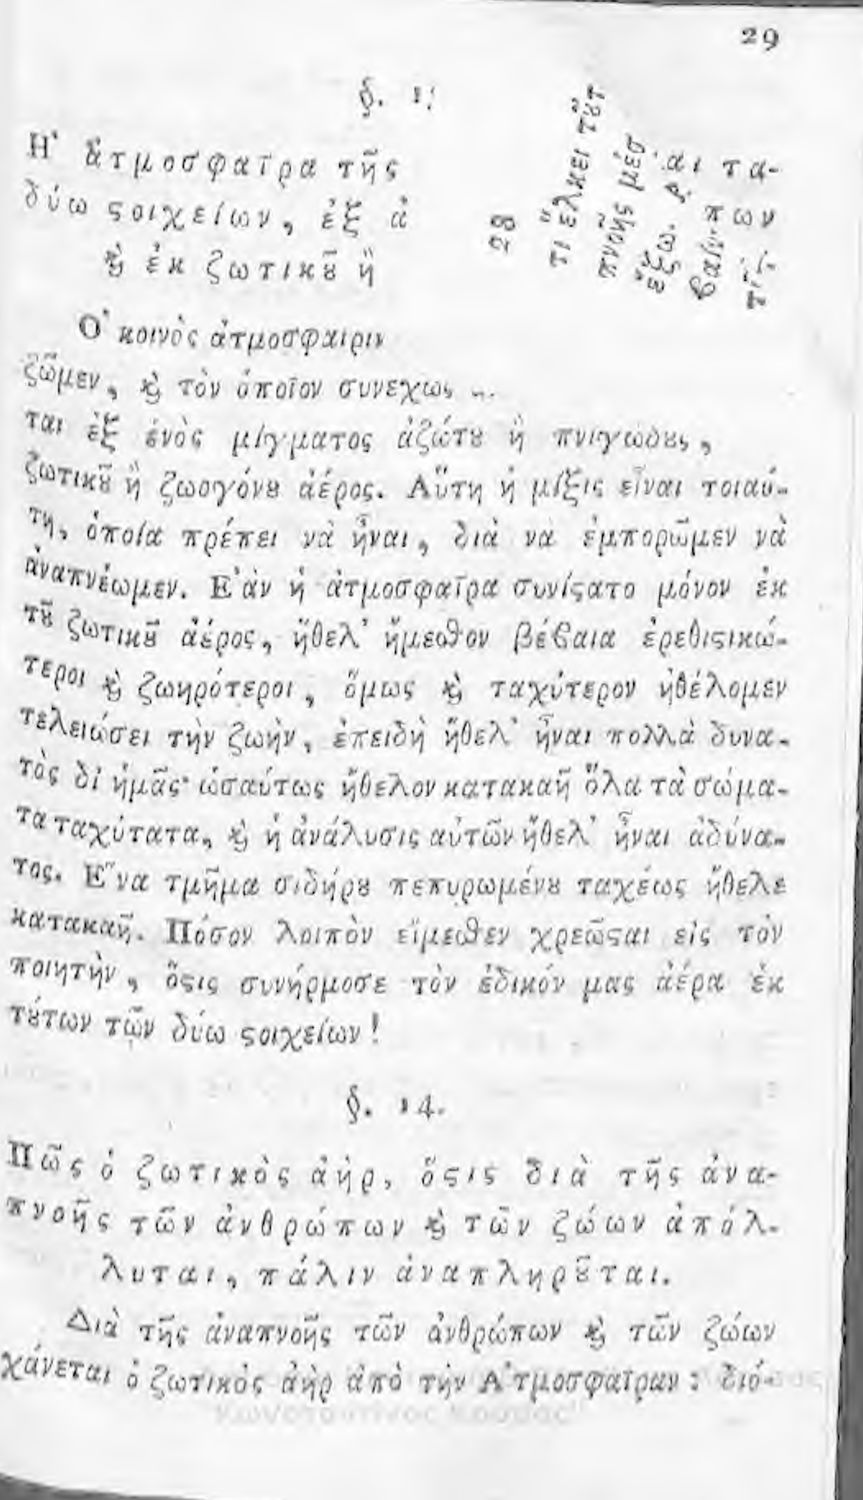 29
§. 1
Η' ἀτμοσφαῖρα τῆς
δύω ϛοιχείων, ἐξ ἀ
ϗ ἐκ ζωτικȣ͂ ἢ
28
τι ἕλκει τȣ̃τ
πνοῆς μέσ
ἔξω.
βαίν
αι τα-
πων
Ο' κοινὸς ἀτμοσφαιρικ
ζῶμεν, ϗ τὸν ὁποῖον συνεχως
ται ἐξ ἑνὸς μίγματος ἀζώτȣ ἢ πνιγώδȣς,
ζωτικȣ͂ ἢ ζωογόνȣ ἀέρος. Αὕτη ἡ μίξις εἶναι τοιαύ-
τη, ὁποία πρέπει νὰ ἦναι, διὰ νὰ ἐμπορῶμεν νὰ
ἀναπνέωμεν. Ε'ὰν ἡ ἀτμοσφαῖρα συνίϛατο μόνον ἐκ
τȣ͂ ζωτικȣ͂ ἀέρος, ἤθελ' ἤμεσθον βέβαια ἐρεθιϛικώ-
τεροι ϗ ζωηρότεροι, ὅμως ϗ ταχύτερον ἠθέλομεν
τελειώσει τὴν ζωὴν, ἐπειδὴ ἤθελ' ἦναι πολλὰ δυνα-
τὸς δἰ ἡμᾶς· ὡσαύτως ἤθελον κατακαῆ ὅλα τὰ σώμα-
τα ταχύτατα, ϗ ἡ ἀνάλυσις αὐτῶν ἤθελ' ἦναι ἀδύνα-
τος. Ε῞να τμῆμα σιδήρȣ πεπυρωμένȣ ταχέως ἤθελε
κατακαῆ. Πόσον λοιπὸν εἴμεσθεν χρεῶϛαι εἰς τὸν
ποιητὴν, ὅϛις συνήρμοσε τὸν ἐδικόν μας ἀέρα ἐκ
τȣ́των τῶν δύω ϛοιχείων!
§. 14.
Πῶς ὁ ζωτικὸς ἀὴρ, ὅϛις διὰ τῆς ἀνα-
πνοῆς τῶν ἀνθρώπων ϗ τῶν ζώων ἀπόλ-
λυται, πάλιν ἀναπληρȣ͂ται.
Διὰ τῆς ἀναπνοῆς τῶν ἀνθρώπων ϗ τῶν ζώων
χάνεται ὁ ζωτικὸς ἀὴρ ἀπὸ τὴν Α'τμοσφαῖραν: διό-